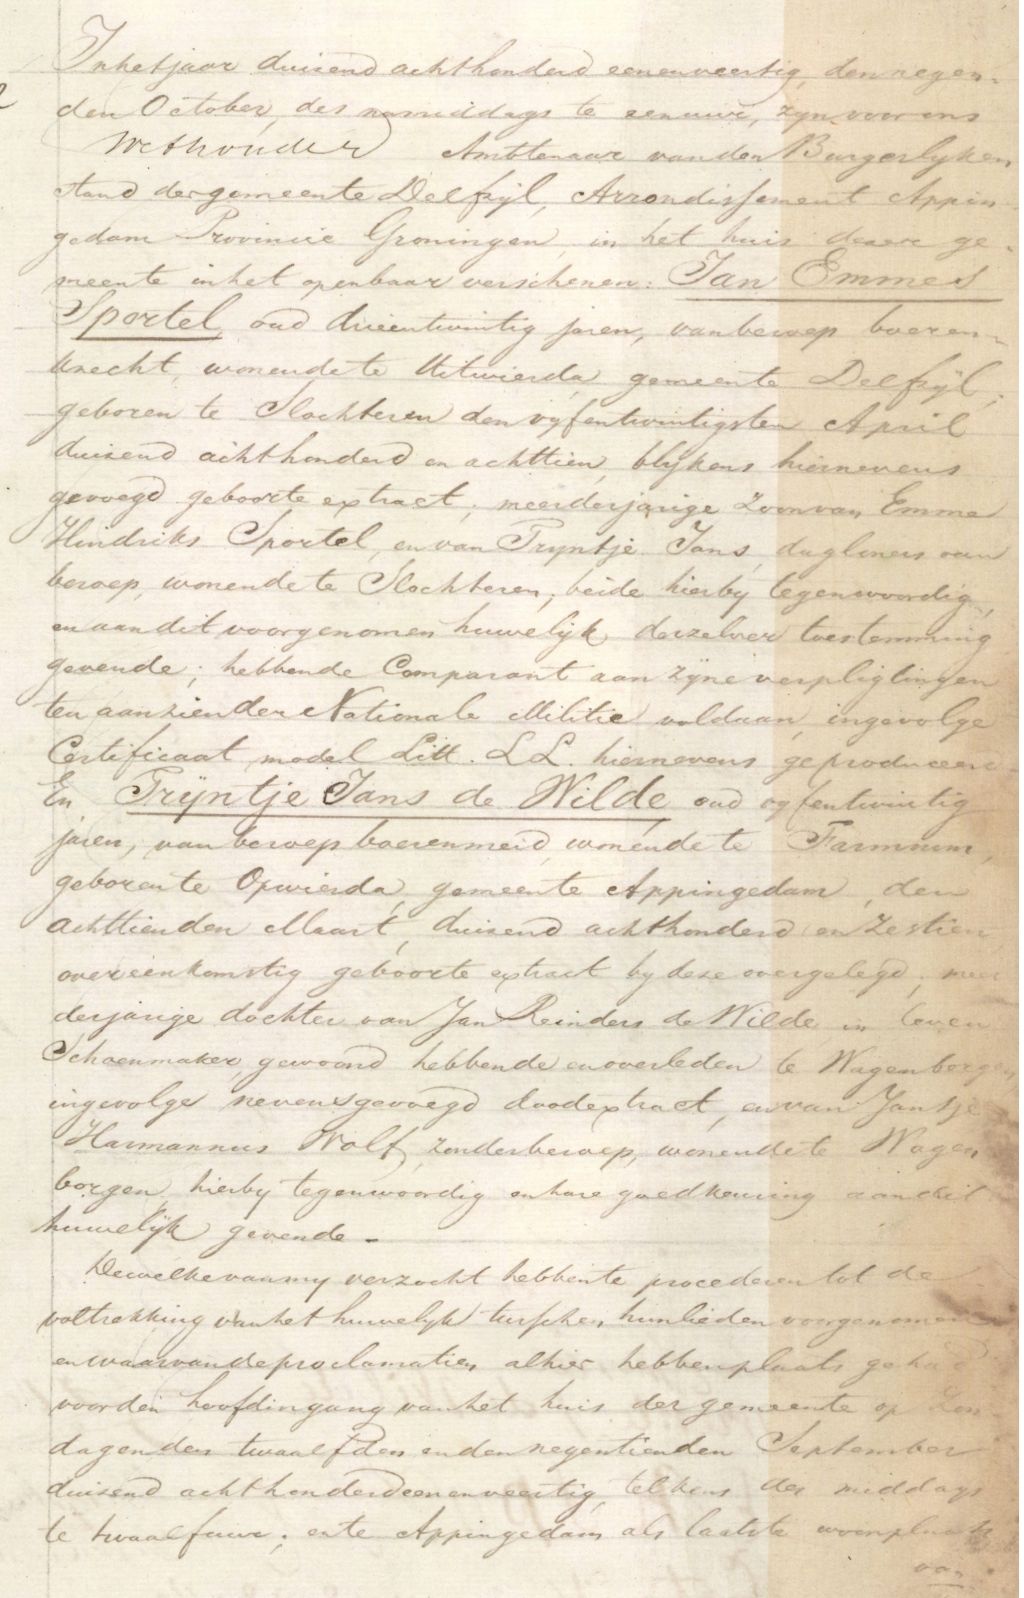 In het jaar duizend achthonderd eenenveertig, den negen-
den October, des namiddags te een uure, zijn voor ons
Wethouder Ambtenaar van den Burgerlyken
stand der gemeente Delfzyl, Arrondissement Appin-
gedam Provincie Groningen, in het huis dezer ge-
meente in het openbaar verschenen: Jan Emmes
Sportel, oud drieentwintig jaren, van beroep boeren-
knecht, wonende te Uitwierda, gemeente Delfzyl,
geboren te Slochteren den vyfentwintigsten April
duizend achthonderd en achttien, blykens hiernevens
gevoegd geboorte extract, meerderjarige zoon van Emme
Hindriks Sportel, en van Tryntje Jans, dagloners van
beroep, wonende te Slochteren, beide hierby tegenwoordig,
en aan dit voorgenomen huwelijk derzelver toestemming
gevende; hebbende Comparant aan zyne verpligtingen
ten aanzien der Nationale Militie voldaan, ingevolge
Certificaat model Litt. LL. hiernevens geproduceerd
En Trijntje Jans de Wilde, oud vyfentwintig
jaren, van beroep boerenmeid, wonende te Farmsum,
geboren te Opwierda, gemeente Appingedam, den
achttienden Maart, duizend achthonderd en zestien,
overeenkomstig geboorte extract by deze overgelegd, meer
derjarige dochter van Jan Reinders de Wilde, in leven
Schoenmaker, gewoond hebbende en overleden te Wagenborgen,
ingevolge nevensgevoegd doodextract, en van Jantje
Harmannus Wolf, zonder beroep, wonende te Wagen
borgen, hierby tegenwoordig en hare goedkeuring aan dit
huwelijk gevende.
Dewelke van my verzocht hebben te procederen tot de
voltrekking van het huwelyk tusschen hunlieden voorgenomen
en waarvan de proclamatien alhier hebben plaats gehad
voor den hoofdingang van het huis der gemeente op Zon
dagen den twaalfden en den negentienden September
duizend achthonderd eenenveertig, telkens des middags
te twaalf uur; en te Appingedam als laatste woonplaats
van